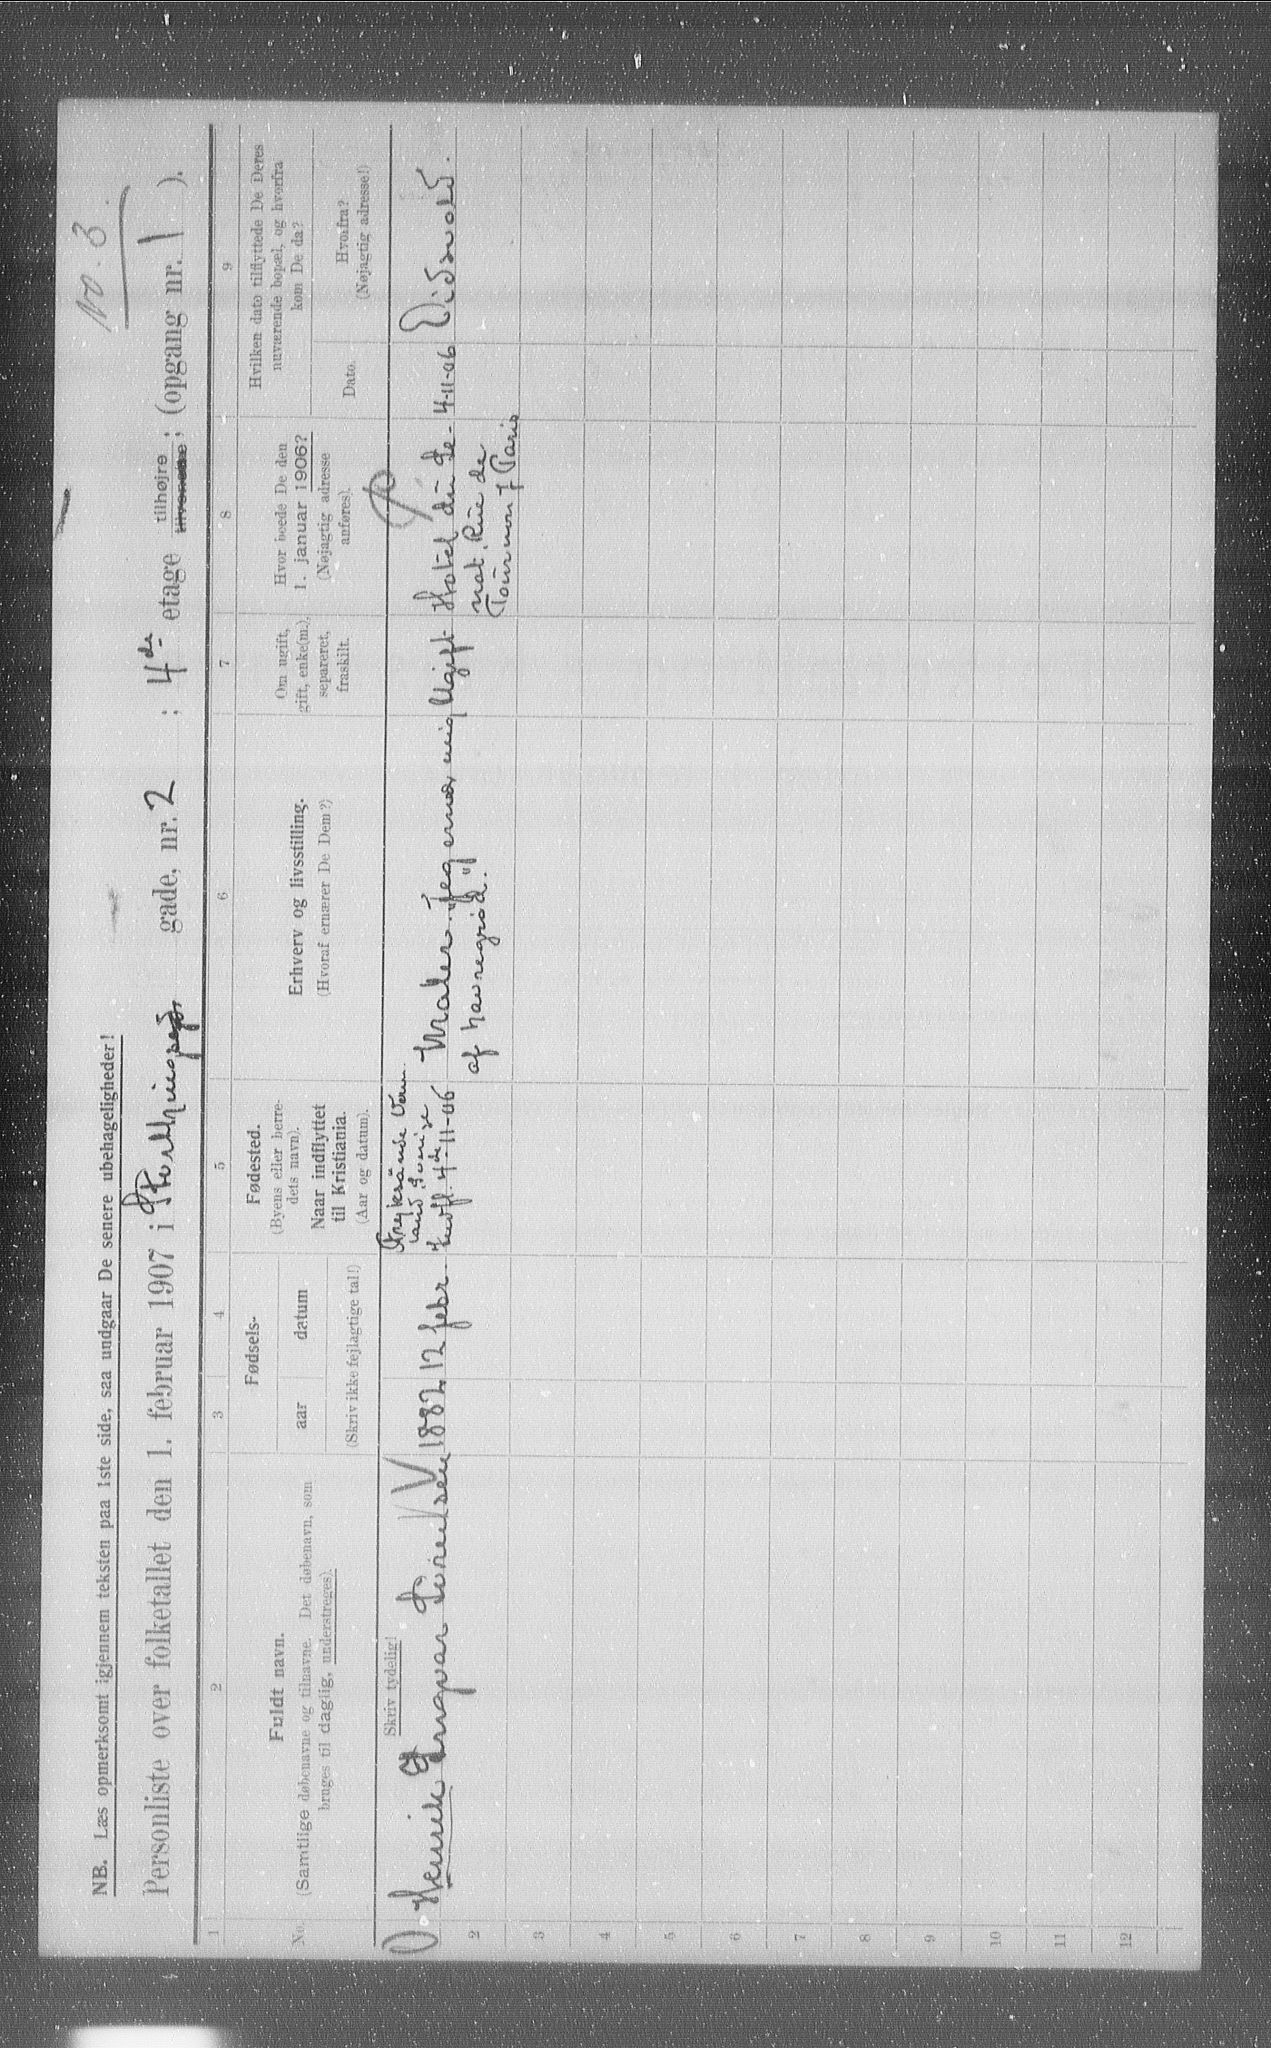 No. 3.
NB. Læs opmerksomt igjennem teksten paa 1ste side, saa undgaar De senere ubehageligheder!
Personliste over folketallet den 1. februar 1907 i Storthings gade, nr. 2 ; 4de etage tilhøjre tilvenstre ; (opgang nr. 1 ).
1 2 3 4 5 6 7 8 9
No.
Fuldt navn.
(Samtlige døbenavne og tilnavne. Det døbenavn, som
bruges til daglig, understreges).
Fødsels-
aar datum
(Skriv ikke fejlagtige tal!)
Fødested.
(Byens eller herre-
dets navn).
Naar indflyttet
til Kristiania.
(Aar og datum).
Erhverv og livsstilling.
(Hvoraf ernærer De Dem?)
Om ugift,
gift, enke(m.),
separeret,
fraskilt.
Hvor boede De den
1. januar 1906?
(Nøjagtig adresse
anføres).
Hvilken dato tilflyttede De Deres
nuværende bopæl, og hvorfra
kom De da?
Dato.
Hvorfra?
(Nøjagtig adresse!)
Skriv tydelig!
Henrik Ingvar Sørensen
1882 12 febr.
Fryksände Verm
land, Sverige
Indfl. 4de-11-06
Maler. "Jeg ernær mig
af havregrød."
Ugift
Hotel du Sé-
nat. Rue de
Tournon 7 Paris
4-11-06
Eidsvold.
2
3
4
5
6
7
8
9
10
11
12